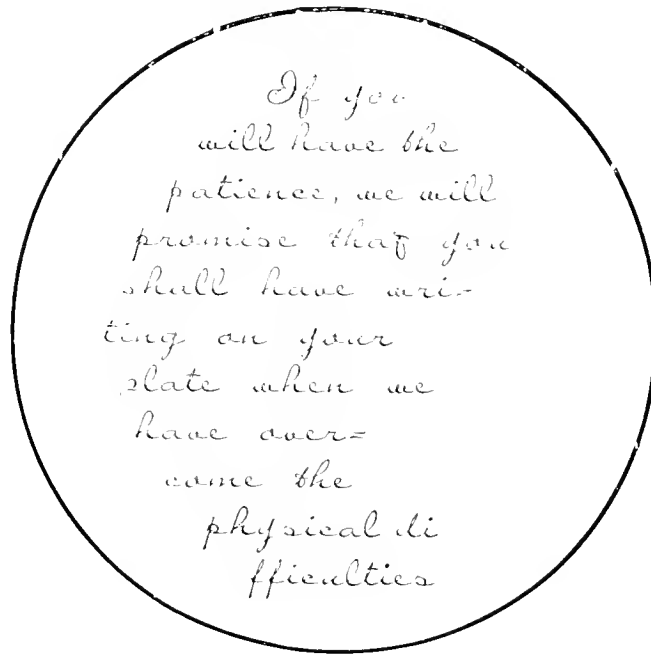 If you
will have the
patience, we will
promise that you
shall have wri-
ting on your
slate when we
have over=
come the
physical di
fficulties